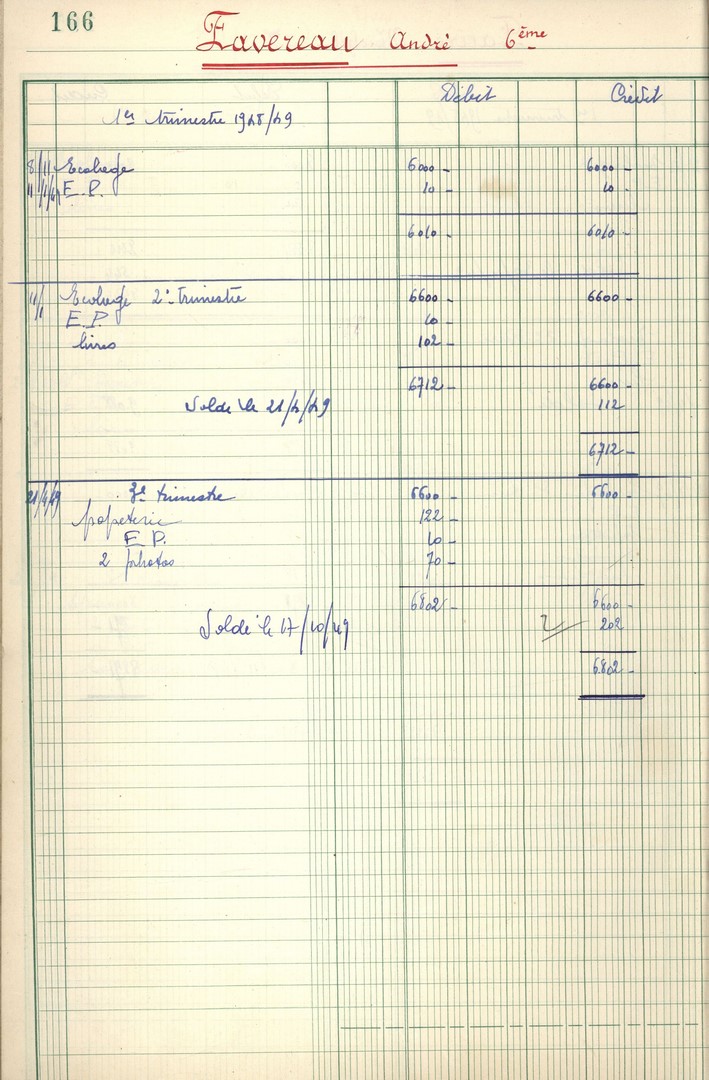 166
Favereau André 6ème
Débit Crédit
1er trimestre 1948/49
8/11 Ecolage 6000 - 6000 -
11/1/49 E.P. 10 - 10 -
6010 - 6010 -
11/1 Ecolage 2e trimestre 6600 - 6600 -
E.P. 10 -
livres 102 -
6712 - 6600 -
Solde le 21/4/49 112
6712 -
21/4/49 3e trimestre 6600 - 6600 -
papeterie 122 -
E P. 10 -
2 photos 70 -
6802 - 6600 -
Solde le 17/10/49 202
6802 -